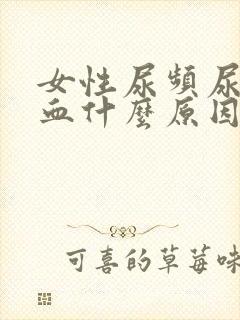 女性尿頻尿
血什麼原因
可喜的草莓味